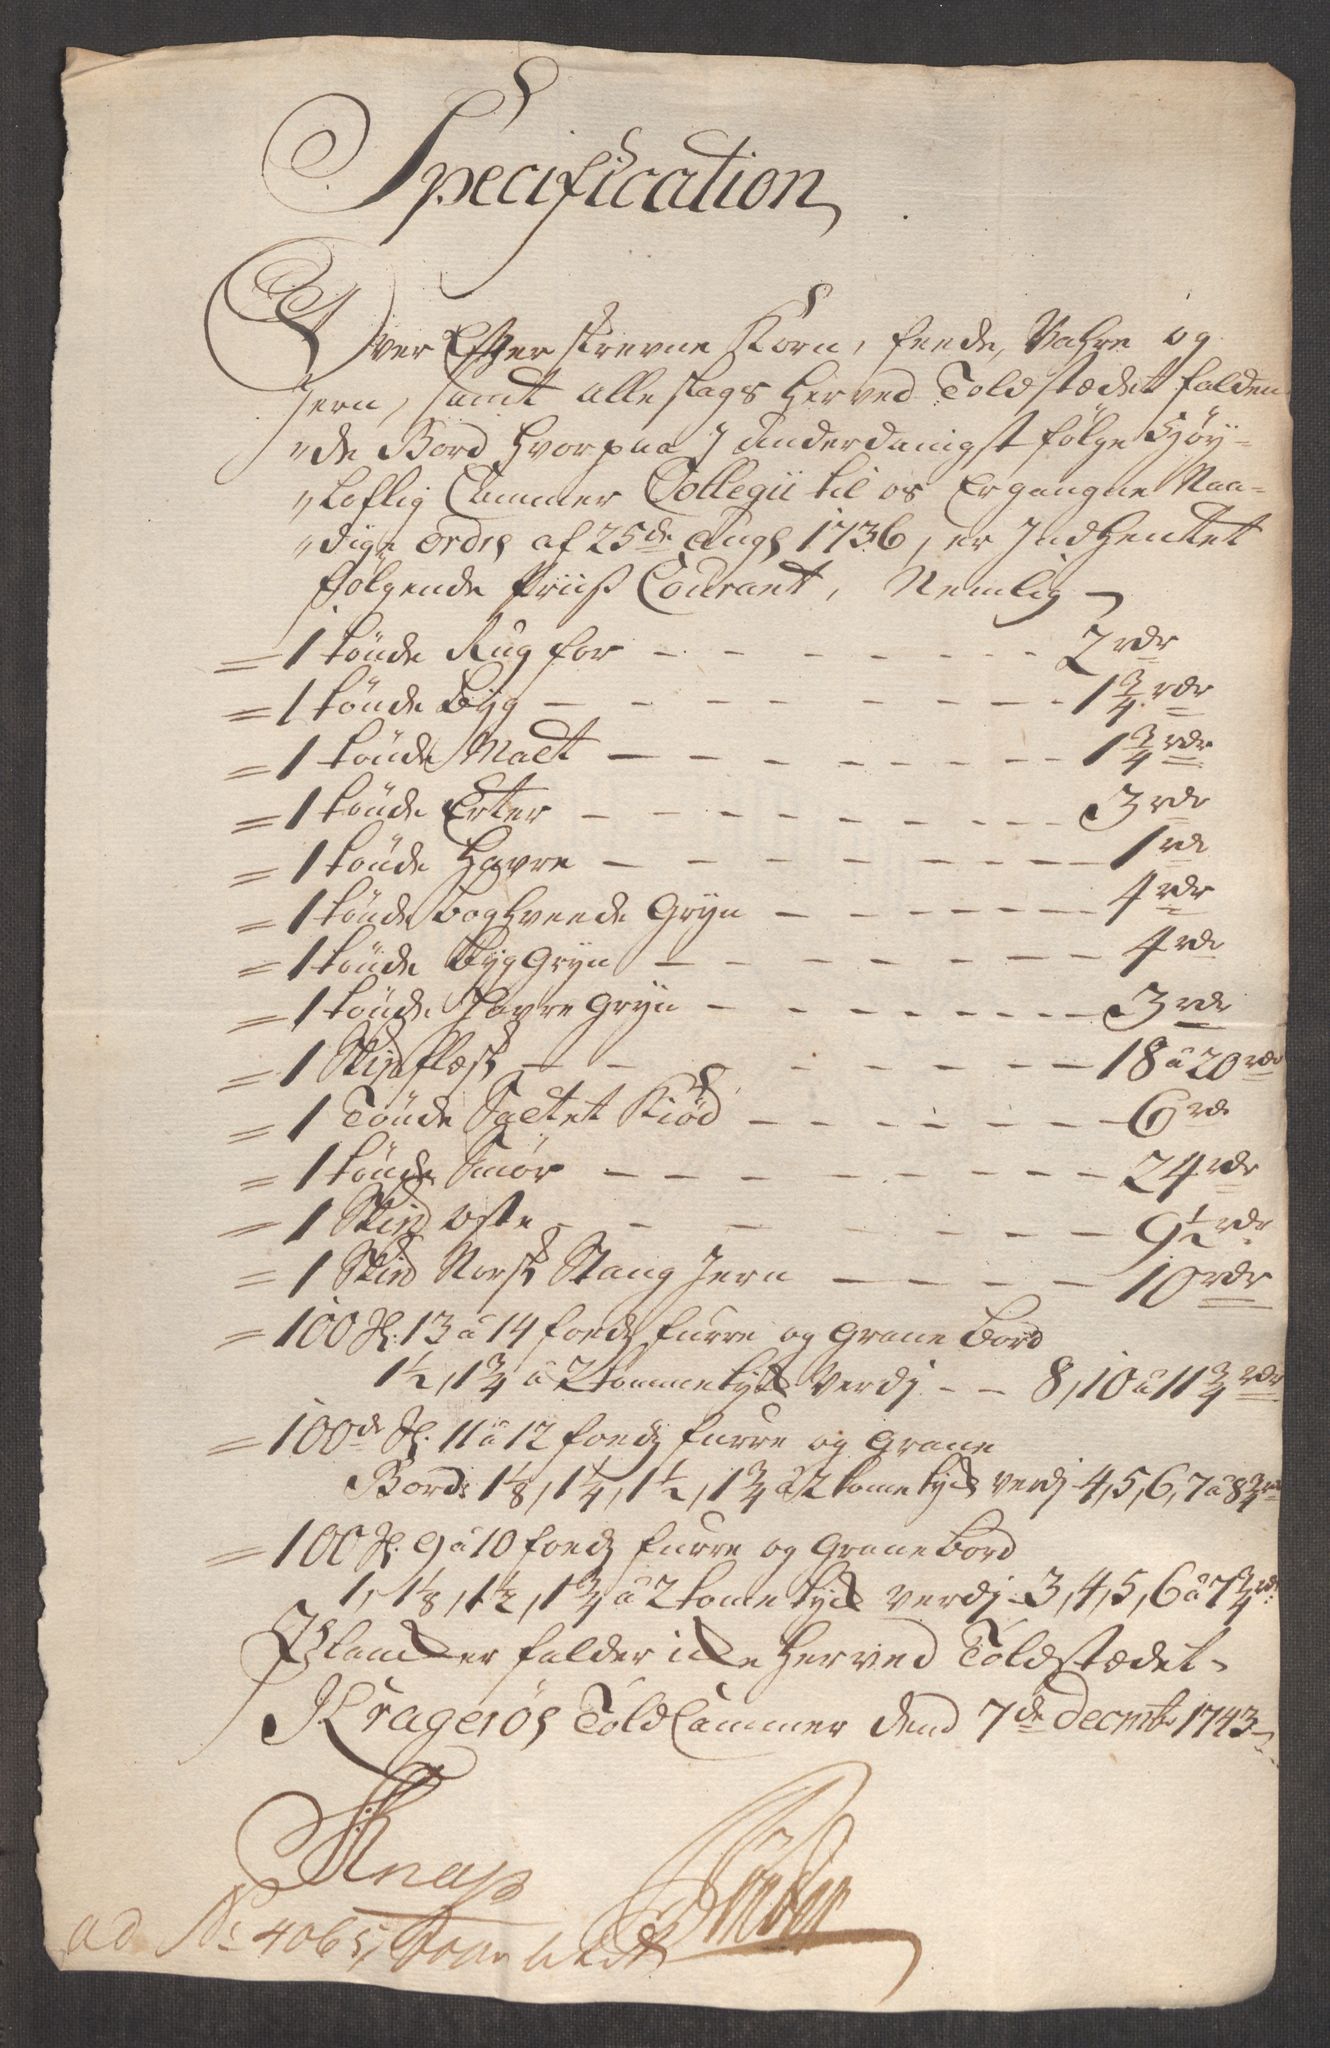 Specification
Over Efter skrevne Korn, feede, Vahre og
Jern, samt alle slags Herved Toldstædet falden
„de Bord Hvorpaa J underdanigst følge Høy-
„loflig Cammer Collegii til os Ergangne Naa-
„dige ordrs af 25de Augs 1736, er JndHentet
følgende Priiß Courant, Nemlig
1 tönde Rug for - - - 2 rdr
1 tönde Byg - - - 1 3/4 rdr
1 tönde Malt - - - 1 3/4 rdr
1 tönde Erter - - - 3 rdr
1 tönde Havre - - - 1 rd
1 tönde bogHveede Gryn - - - 4 rdr
1 tönde Byg Gryn - - - 4 rdr
1 tönde Havre Gryn - - - 3 rdr
1 Skip flæsk - - - 18 a 20 rdr
1 Tönde Saltet Kiød - - - 6 rd
1 tönde Smør - - - 24 rdr
1 Skip oste - - - 9 1/2 rdr
1 Skip Norsk Stang Jern - - - 10 rdr
100 St. 13 a 14 foeds furre og Grane Bord
1 1/2, 1 3/4 a 2 tomme tyk Verdj - - 8, 10 a 11 3/4 rdr
100de St. 11 a 12 foeds furre og Grane
Bord: 1 1/8, 1 1/4, 1 1/2, 1 3/4 a 2 tome tyk verdj 4, 5, 6, 7 a 8 3/4 rd
100 St. 9 a 10 foeds furre og Grane Bord
1, 1 1/8, 1 1/2, 1 3/4 a 2 tome tyk verdj 3, 4, 5, 6 a 7 3/4 rdr.
falder icke Herved Toldstædet
Kragerøs Told Cammer dend 7de Decmbr 1743
Knap
ad No 4065,